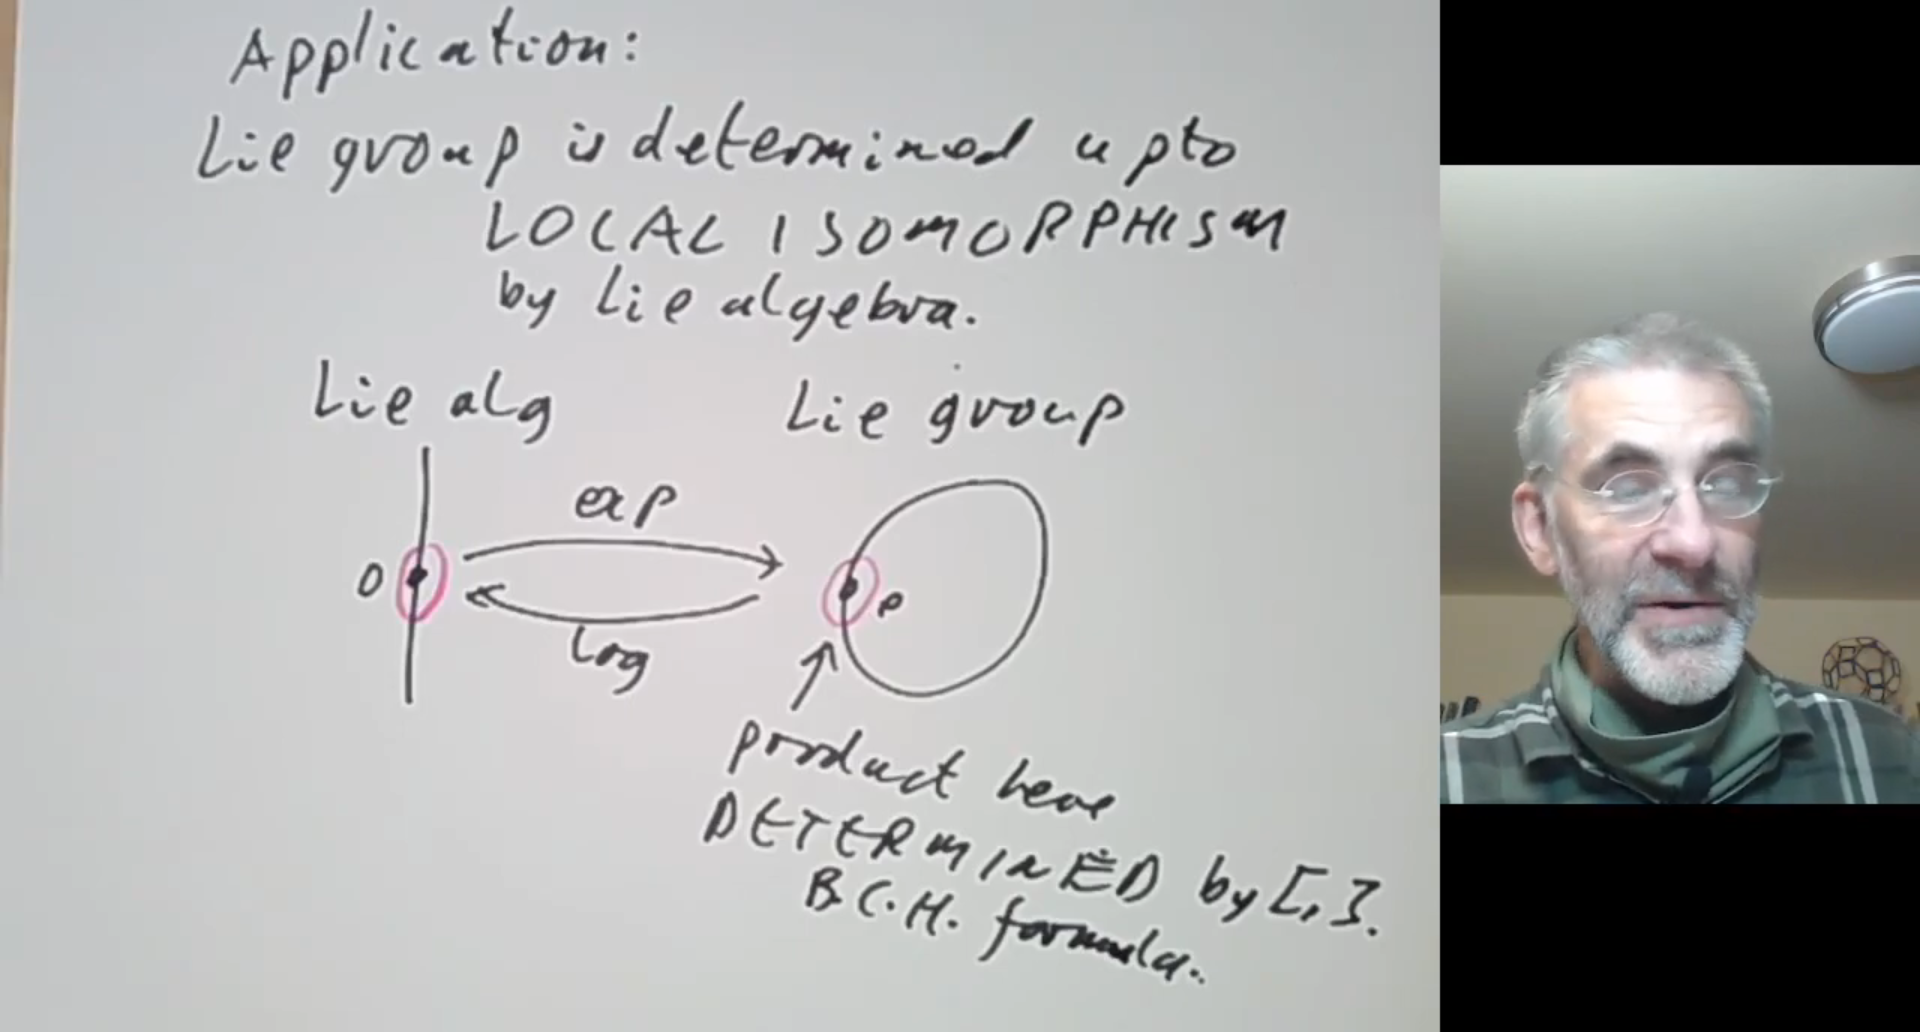 Application:
Lie group is determined upto
LOCAL ISOMORPHISM
by Lie algebra.
Lie alg
Lie group
exp
0
e
log
product here
DETERMINED by [,].
B.C.H. formula.